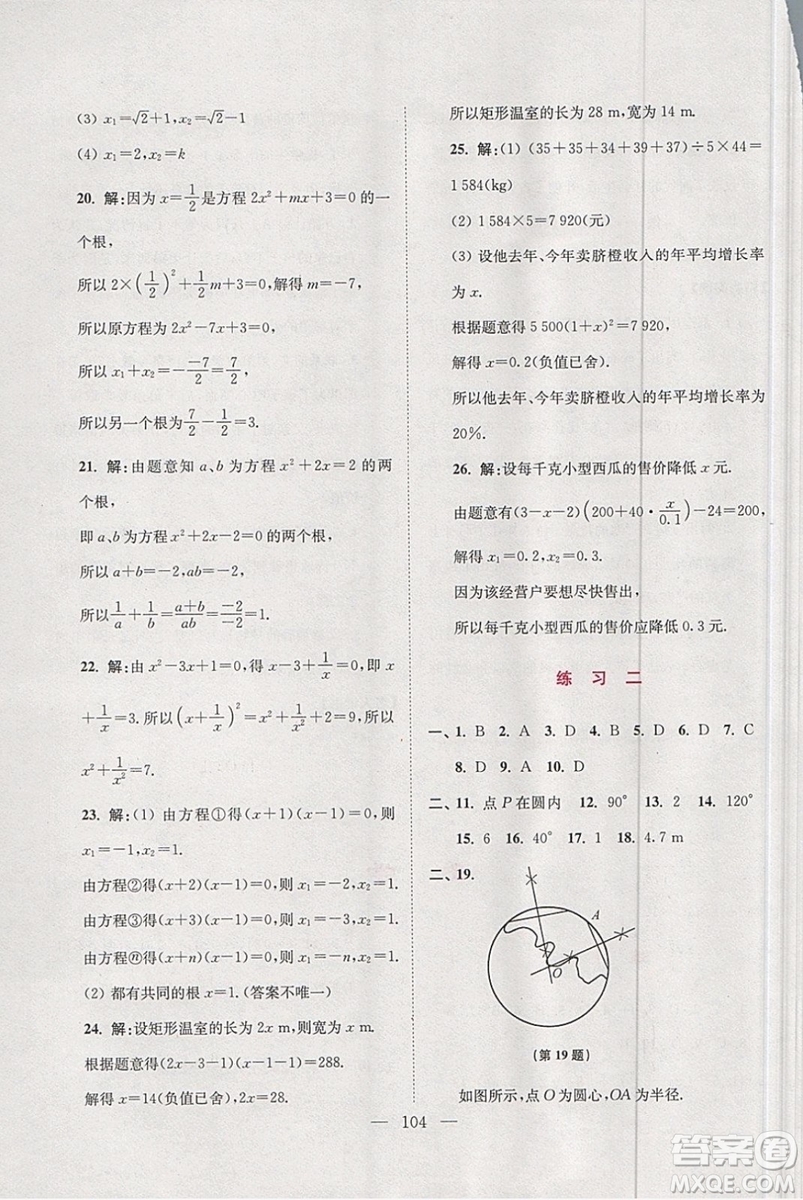 (3) x₁=√2+1,x₂=√2-1
(4) x₁=2,x₂=k
20. 解:因为 x=1/2 是方程 2x²+mx+3=0 的一
个根,
所以 2×(1/2)²+1/2m+3=0,解得 m=-7,
所以原方程为 2x²-7x+3=0,
所以 x₁+x₂=-(-7)/2=7/2,
所以另一个根为 7/2-1/2=3.
21. 解:由题意知 a、b 为方程 x²+2x=2 的两
个根,
即 a、b 为方程 x²+2x-2=0 的两个根,
所以 a+b=-2,ab=-2,
所以 1/a+1/b=(a+b)/(ab)=(-2)/(-2)=1.
22. 解:由 x²-3x+1=0,得 x-3+1/x=0,即 x
+1/x=3.所以(x+1/x)²=x²+1/x²+2=9,所以
x²+1/x²=7.
23. 解:(1) 由方程①得(x+1)(x-1)=0,则
x₁=-1,x₂=1.
由方程②得(x+2)(x-1)=0,则 x₁=-2,x₂=1.
由方程③得(x+3)(x-1)=0,则 x₁=-3,x₂=1.
由方程ⓝ得(x+n)(x-1)=0,则 x₁=-n,x₂=1.
(2) 都有共同的根 x=1.(答案不唯一)
24. 解:设矩形温室的长为 2x m,则宽为 x m.
根据题意得(2x-3-1)(x-1-1)=288.
解得 x=14(负值已舍).
所以矩形温室的长为 28 m,宽为 14 m.
25. 解:(1) (35+35+34+39+37)÷5×44=
1 584(kg)
(2) 1 584×5=7 920(元)
(3) 设他去年、今年卖脐橙收入的年平均增长率
为 x.
根据题意得 5 500(1+x)²=7 920,
解得 x=0.2(负值已舍).
所以他去年、今年卖脐橙收入的年平均增长率为
20%.
26. 解:设每千克小型西瓜的售价降低 x 元.
由题意有(3-x-2)(200+40·x/0.1)-24=200,
解得 x₁=0.2,x₂=0.3.
因为该经营户要想尽快售出,
所以每千克小型西瓜的售价应降低 0.3 元.
练 习 二
一、1. B 2. A 3. D 4. B 5. D 6. D 7. C
8. D 9. A 10. D
二、11. 点 P 在圆内 12. 90° 13. 2 14. 120°
15. 6 16. 40° 17. 1 18. 4.7 m
二、19.
A
O
(第 19 题)
如图所示,点 O 为圆心,OA 为半径.
104
答案圈
MXQE.COM